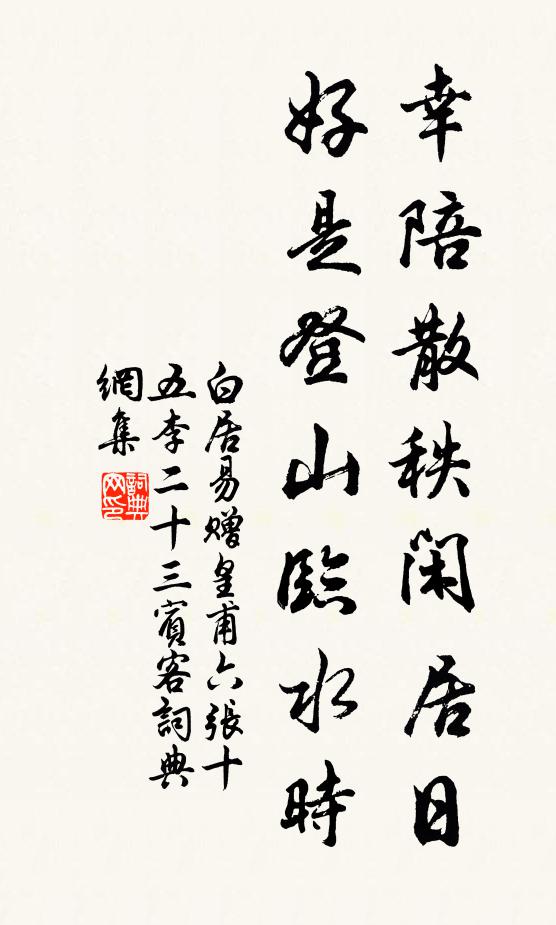 幸陪散秩閑居日
好是登山臨水時
白居易贈皇甫六張十
五李二十三賓客詞典
網集
詞典網印